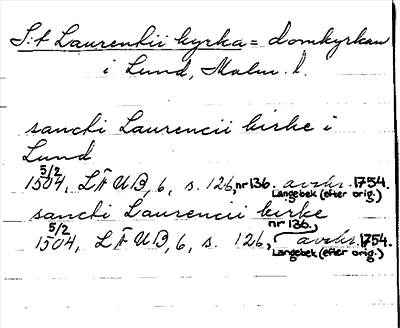 S:t Laurentii kyrka = domkyrkan
i Lund, Malm. l.
sancti Laurencii kirke i
Lund
5/2 1504, LÄUB, 6, s. 126, nr 136. avskr. 1754.
Langebek (efter orig.)
sancti Laurencii kirke
nr 136,
5/2 1504, LÄUB, 6, s. 126, avskr. 1754.
Langebek (efter orig.)